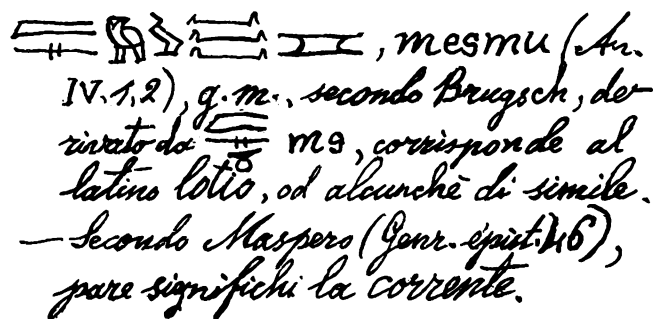 , mesmu (An.
IV. 1, 2), g. m., secondo Brugsch, de-
rivato da ms, corrisponde al
latino lotio, od alcunchè di simile.
— Secondo Maspero (Genr. épist. 46),
pare significhi la corrente.